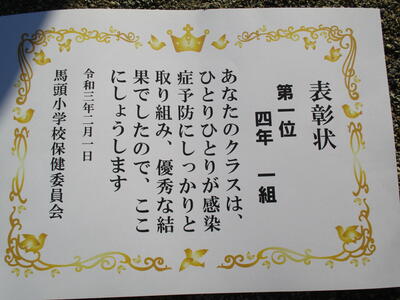 表彰状
第一位
四年 一組
あなたのクラスは、
ひとりひとりが感染
症予防にしっかりと
取り組み、優秀な結
果でしたので、ここ
にしょうします
令和三年二月一日
馬頭小学校保健委員会